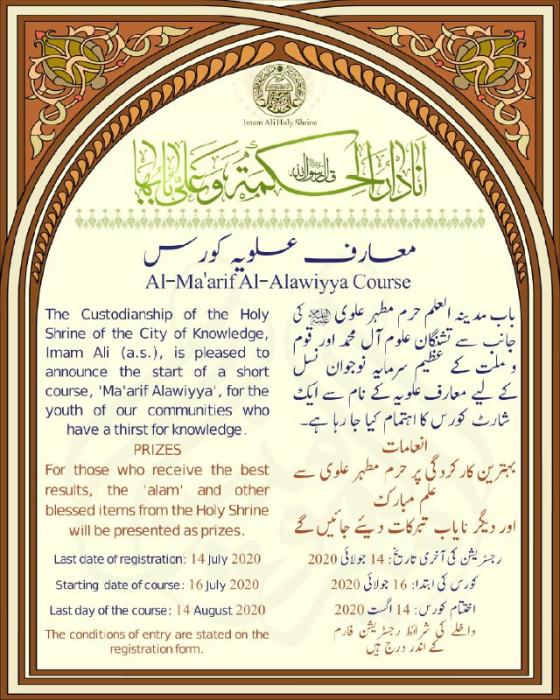 Imam Ali Holy Shrine
انا دار الحكمة وعلي بابها
قال رسول الله
معارف علویہ کورس
Al-Ma'arif Al-Alawiyya Course
The Custodianship of the Holy
Shrine of the City of Knowledge,
Imam Ali (a.s.), is pleased to
announce the start of a short
course, 'Ma'arif Alawiyya', for the
youth of our communities who
have a thirst for knowledge.
PRIZES
For those who receive the best
results, the 'alam' and other
blessed items from the Holy Shrine
will be presented as prizes.
Last date of registration: 14 July 2020
Starting date of course: 16 July 2020
Last day of the course: 14 August 2020
The conditions of entry are stated on the
registration form.
باب مدینہ العلم حرم مطہر علوی کی
جانب سے تشنگان علوم آل محمد اور قوم
و ملت کے عظیم سرمایہ نوجوان نسل
کے لیے معارف علویہ کے نام سے ایک
شارٹ کورس کا اہتمام کیا جا رہا ہے۔
انعامات
بہترین کارکردگی پر حرم مطہر علوی سے
علم مبارک
اور دیگر نایاب تبرکات دیئے جائیں گے
رجسٹریشن کی آخری تاریخ: 14 جولائی 2020
کورس کی ابتدا: 16 جولائی 2020
اختتام کورس: 14 اگست 2020
داخلے کی شرائط رجسٹریشن فارم
کے اندر درج ہیں